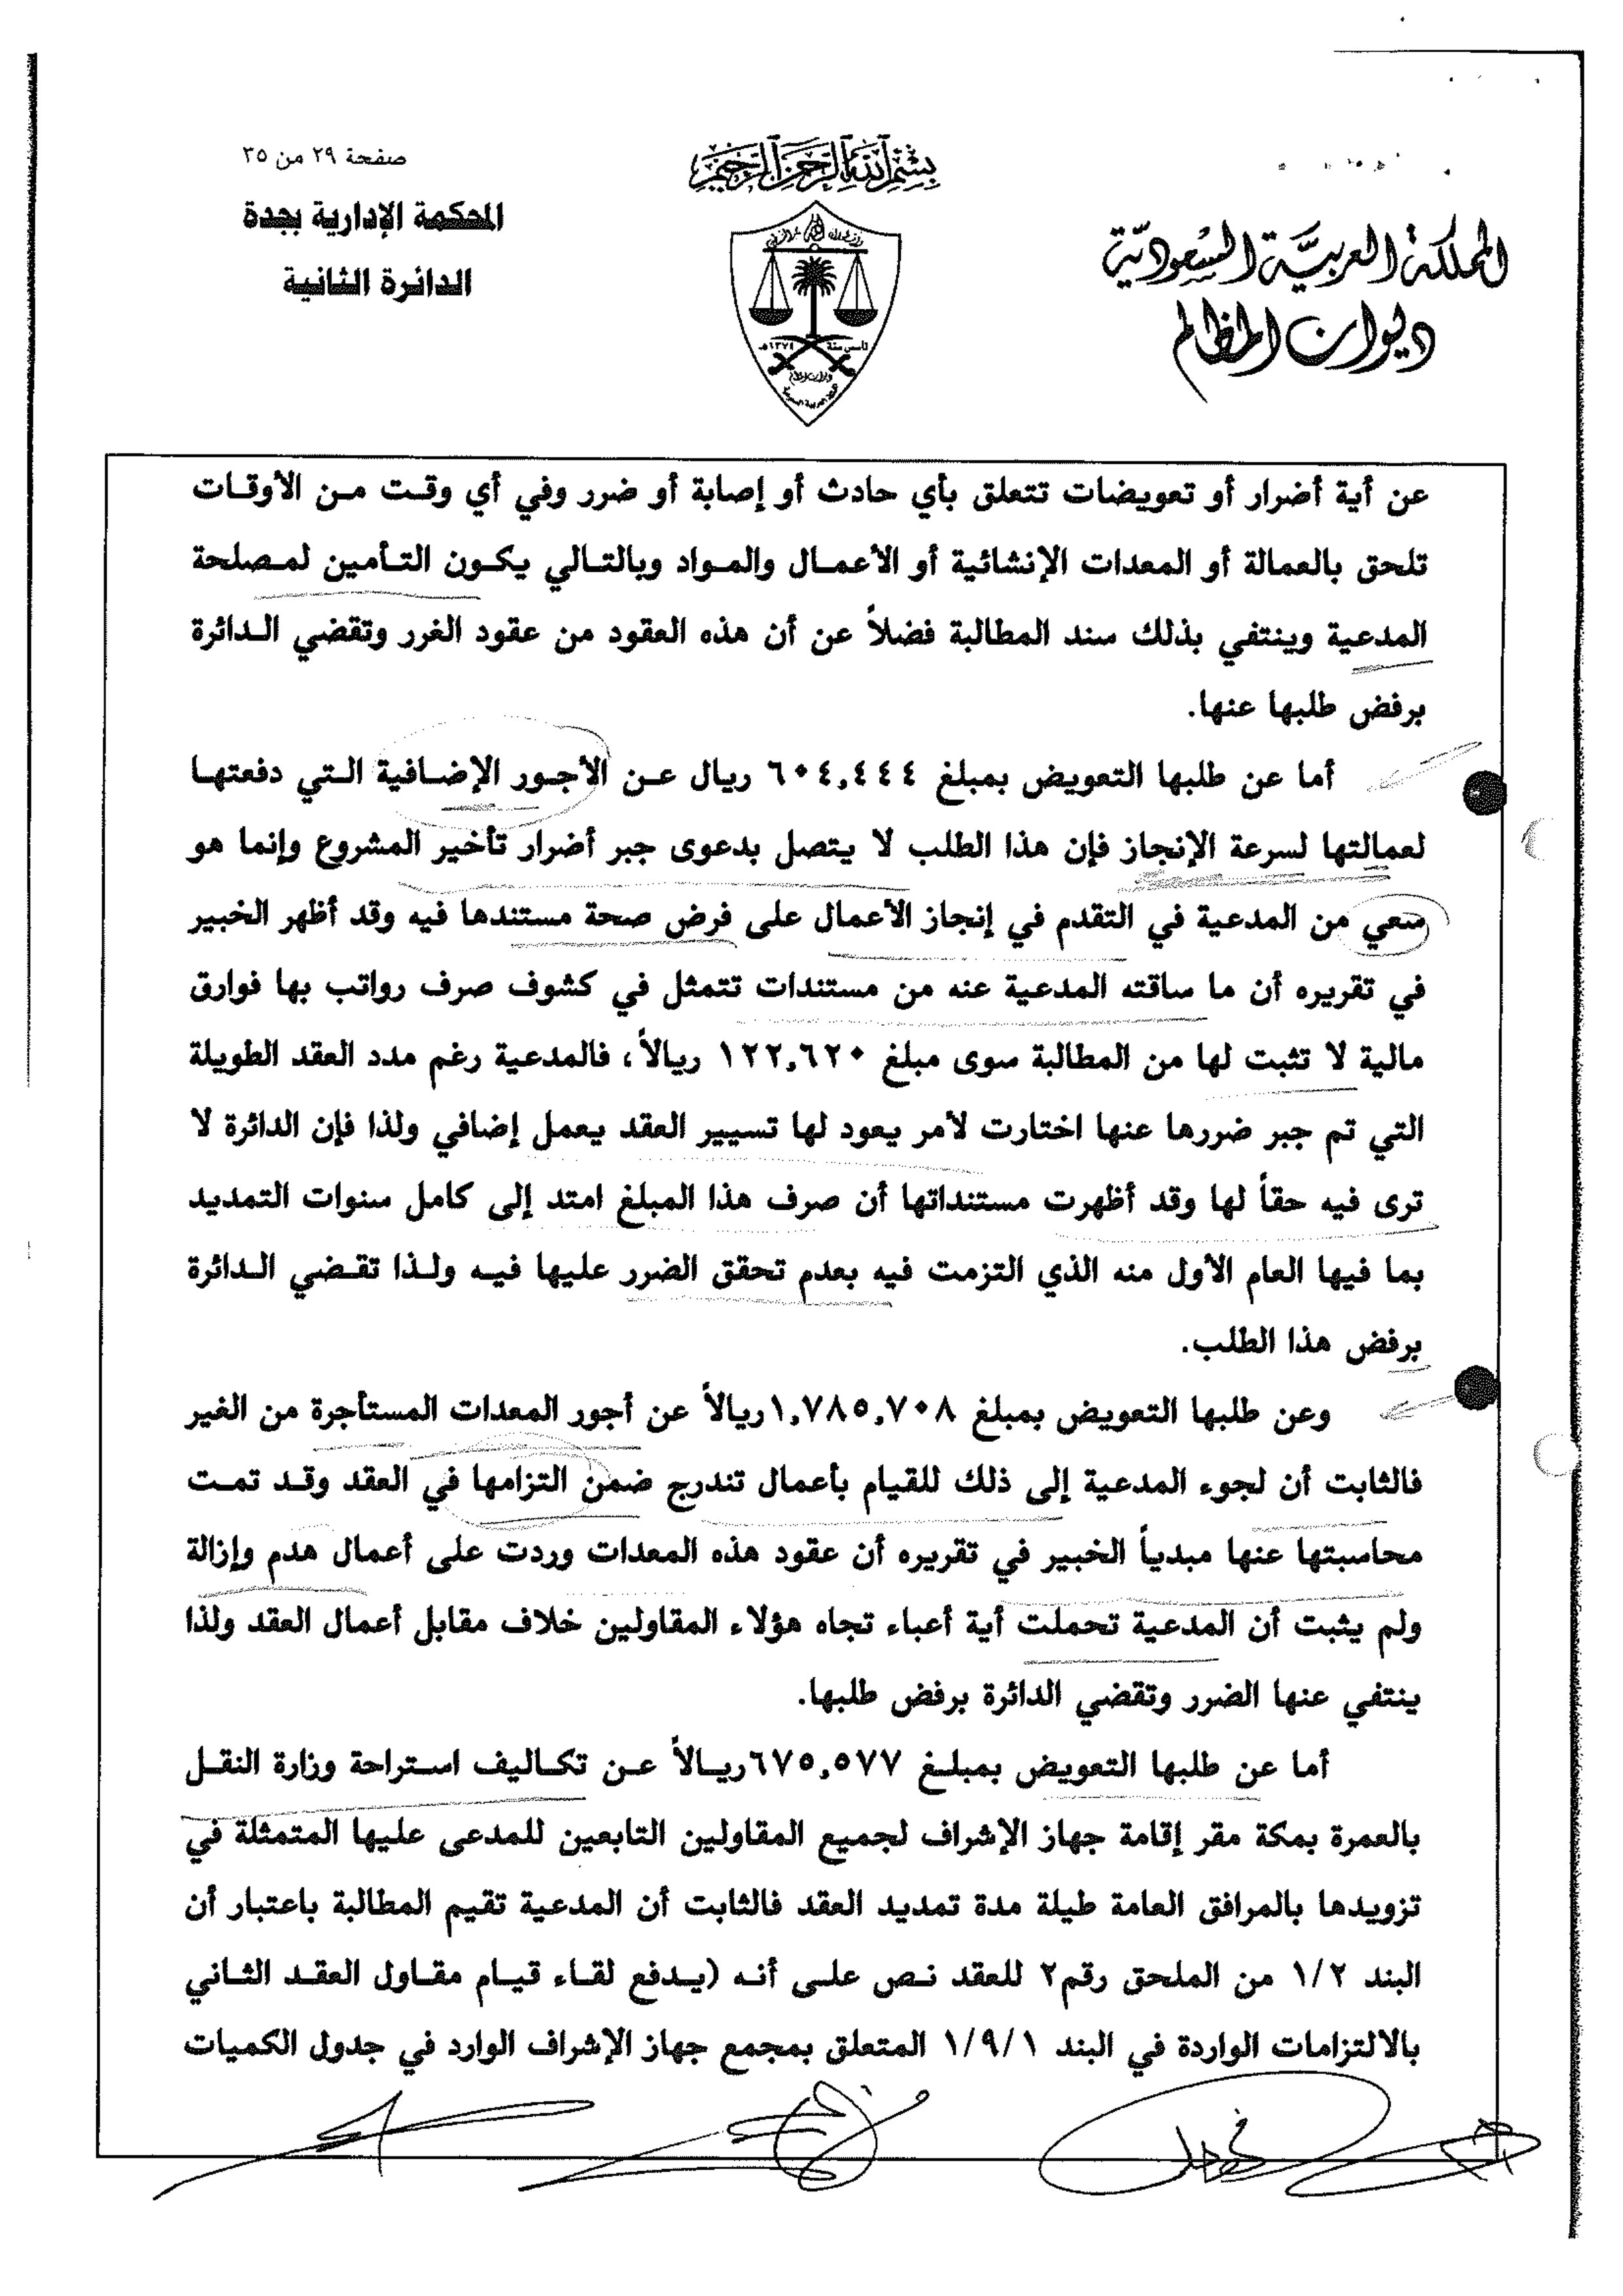 صفحة ٢٩ من ٣٥
بسم الله الرحمن الرحيم
المملكة العربية السعودية
ديوان المظالم
المحكمة الإدارية بجدة
الدائرة الثانية
عن أية أضرار أو تعويضات تتعلق بأي حادث أو إصابة أو ضرر وفي أي وقت من الأوقات
تلحق بالعمالة أو المعدات الإنشائية أو الأعمال والمواد وبالتالي يكون التأمين لمصلحة
المدعية وينتفي بذلك سند المطالبة فضلاً عن أن هذه العقود من عقود الغرر وتقضي الدائرة
برفض طلبها عنها.
أما عن طلبها التعويض بمبلغ ٦٠٤,٤٤٤ ريال عن الأجور الإضافية التي دفعتها
لعمالتها لسرعة الإنجاز فإن هذا الطلب لا يتصل بدعوى جبر أضرار تأخير المشروع وإنما هو
سعي من المدعية في التقدم في إنجاز الأعمال على فرض صحة مستندها فيه وقد أظهر الخبير
في تقريره أن ما ساقته المدعية عنه من مستندات تتمثل في كشوف صرف رواتب بها فوارق
مالية لا تثبت لها من المطالبة سوى مبلغ ١٢٢,٦٢٠ ريالاً، فالمدعية رغم مدد العقد الطويلة
التي تم جبر ضررها عنها اختارت لأمر يعود لها تسيير العقد يعمل إضافي ولذا فإن الدائرة لا
ترى فيه حقاً لها وقد أظهرت مستنداتها أن صرف هذا المبلغ امتد إلى كامل سنوات التمديد
بما فيها العام الأول منه الذي التزمت فيه بعدم تحقق الضرر عليها فيه ولذا تقضي الدائرة
برفض هذا الطلب.
وعن طلبها التعويض بمبلغ ١,٧٨٥,٧٠٨ريالاً عن أجور المعدات المستأجرة من الغير
فالثابت أن لجوء المدعية إلى ذلك للقيام بأعمال تندرج ضمن التزامها في العقد وقد تمت
محاسبتها عنها مبدياً الخبير في تقريره أن عقود هذه المعدات وردت على أعمال هدم وإزالة
ولم يثبت أن المدعية تحملت أية أعباء تجاه هؤلاء المقاولين خلاف مقابل أعمال العقد ولذا
ينتفي عنها الضرر وتقضي الدائرة برفض طلبها.
أما عن طلبها التعويض بمبلغ ٦٧٥,٥٧٧ريالاً عن تكاليف استراحة وزارة النقل
بالعمرة بمكة مقر إقامة جهاز الإشراف لجميع المقاولين التابعين للمدعى عليها المتمثلة في
تزويدها بالمرافق العامة طيلة مدة تمديد العقد فالثابت أن المدعية تقيم المطالبة باعتبار أن
البند ١/٢ من الملحق رقم٢ للعقد نص على أنه (يدفع لقاء قيام مقاول العقد الثاني
بالالتزامات الواردة في البند ١/٩/١ المتعلق بمجمع جهاز الإشراف الوارد في جدول الكميات